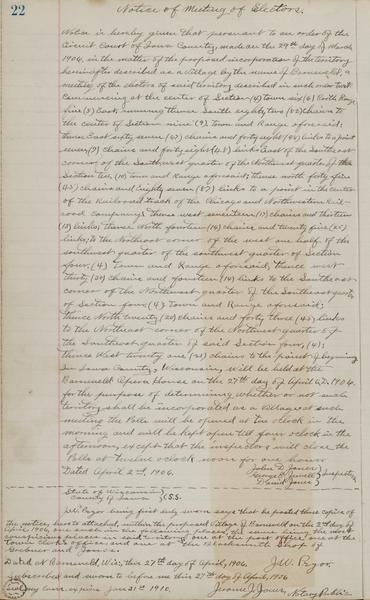 22
Notice of Meeting of Electors.
Notice is hereby given that persuant to an order of the
Circuit Court of Iowa County, made on the 29th day of March
1906, in the matter of the proposed incorporation of the territory
hereinafter described as a Village by the name of Barneveld, a
meeting of the electors of said territory described in such order to wit:
Commencing at the center of Section (4) town six (6) North Range
five (5) East, running thence South eighty two (82) chains to
the center of Section nine (9), town and Range aforesaid,
thence East sixty seven (67) chains and forty eight (48) links to a point
seven (7) chains and forty eight (48) links East of the Southeast
corner of the Southwest quarter of the Northwest quarter of
Section ten, (10) town and Range aforesaid; thence north forty five
(45) chains and Eighty seven (87) links to a point in the center
of the Railroad track of the Chicago and Northwestern Rail-
road company; thence west seventeen (17) chains and thirteen
(13) links; thence North fourteen (14) chains and twenty five (25)
links; to the Northeast corner of the west one half of the
southwest quarter of the southwest quarter of Section
four, (4) Town and Range aforesaid; thence west
thirty (30) chains and fourteen (14) links to the Southeast
corner of the Northwest quarter of the Southeast quarter
of Section four (4) Town and Range aforesaid;
thence North twenty (20) chains and forty three (43) links
to the Northeast corner of the Northwest quarter of
the Southeast quarter of said Section four, (4);
thence West twenty one (21) chains to the point of beginning
in Iowa County, Wisconsin, will be held at the
Barneveld Opera House on the 27th day of April A.D. 1906.
for the purpose of determining whether or not such
territory shall be incorporated as a Village at such
meeting the Polls will be opened at nine oclock in the
morning and will be kept open till four oclock in the
afternoon, except that the inspectors will close the
Polls at twelve oclock noon for one hour
Dated April 2nd, 1906.
John D. Jones
George C. Jewell Inspectors
David Jones
State of Wisconsin
County of Iowa S.S.
J.W. Pryor being first duly sworn says that he posted three copies of
the notice, hereto attached, within the proposed Village of Barneveld on the 2nd day of
April, 1906, one each in the following places, the same being the most
conspicuous places in said territory one at the post office, one at the
Town Clerk's office and one at the Blacksmith Shop of
and Jones.
Dated at Barneveld, Wis., this 27th day of April, 1906.
J.W. Pryor.
Subscribed and sworn to before me this 27th day of April, 1906
my com. expires Jan 31st 1910.
Jerome J. Jones, Notary Public